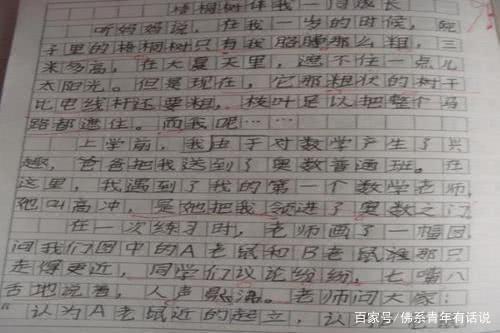 梧桐树伴我一同成长
听妈妈说，在我一岁的时候，院
子里的梧桐树只有我胳膊那么粗，三
米多高，在大夏天里，遮不住一点儿
太阳光。但是现在，它那粗状的树干
比电线杆还要粗，枝叶足以把整个马
路都遮住。而我呢……
上学前，我由于对数学产生了兴
趣，爸爸把我送到了奥数普通班。在
这里，我遇到了我的第一个数学老师，
她叫高冲，是她把我领进了奥数之门
在一次练习时，老师画了一幅图，
问我们图中的A老鼠和B老鼠谁那只
走得更近，同学们议论纷纷，七嘴八
舌地说着，人声鼎沸。老师问大家：
“认为A老鼠近的起立，认
百家号/佛系青年有话说